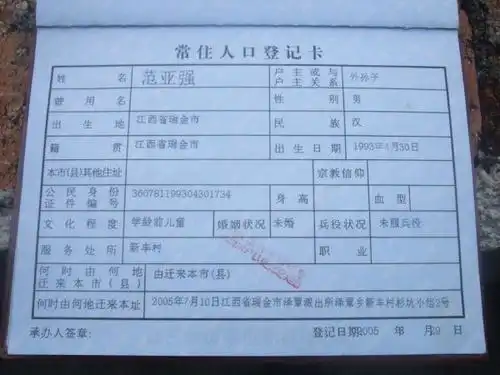 常住人口登记卡
姓名 范亚强 户主或与户主关系 外孙子
曾用名 性别 男
出生地 江西省瑞金市 民族 汉
籍贯 江西省瑞金市 出生日期 1993年4月30日
本市(县)其他住址 宗教信仰
公民身份证件编号 360781199304301734 身高 血型
文化程度 学龄前儿童 婚姻状况 未婚 兵役状况 未服兵役
服务处所 新丰村 职业
何时由何地迁来本市(县) 由迁来本市(县)
何时由何地迁来本址 2005年7月10日江西省瑞金市泽覃派出所泽覃乡新丰村杉坑小组2号
承办人签章: 登记日期2005 年 月 日